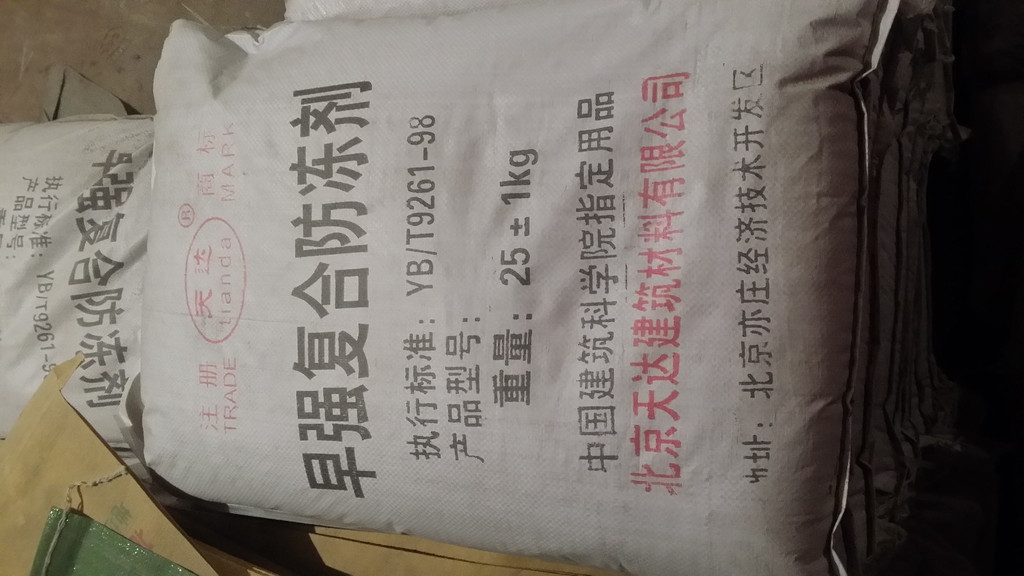 注册 天达 ® 商标
TRADE Tianda MARK
早强复合防冻剂
执行标准：YB/T9261-98
产品型号：
重量：25±1kg
中国建筑科学院指定用品
北京天达建筑材料有限公司
地址：北京亦庄经济技术开发区
早强复合防冻剂
执行标准：YB/T9261-9
产品型号：